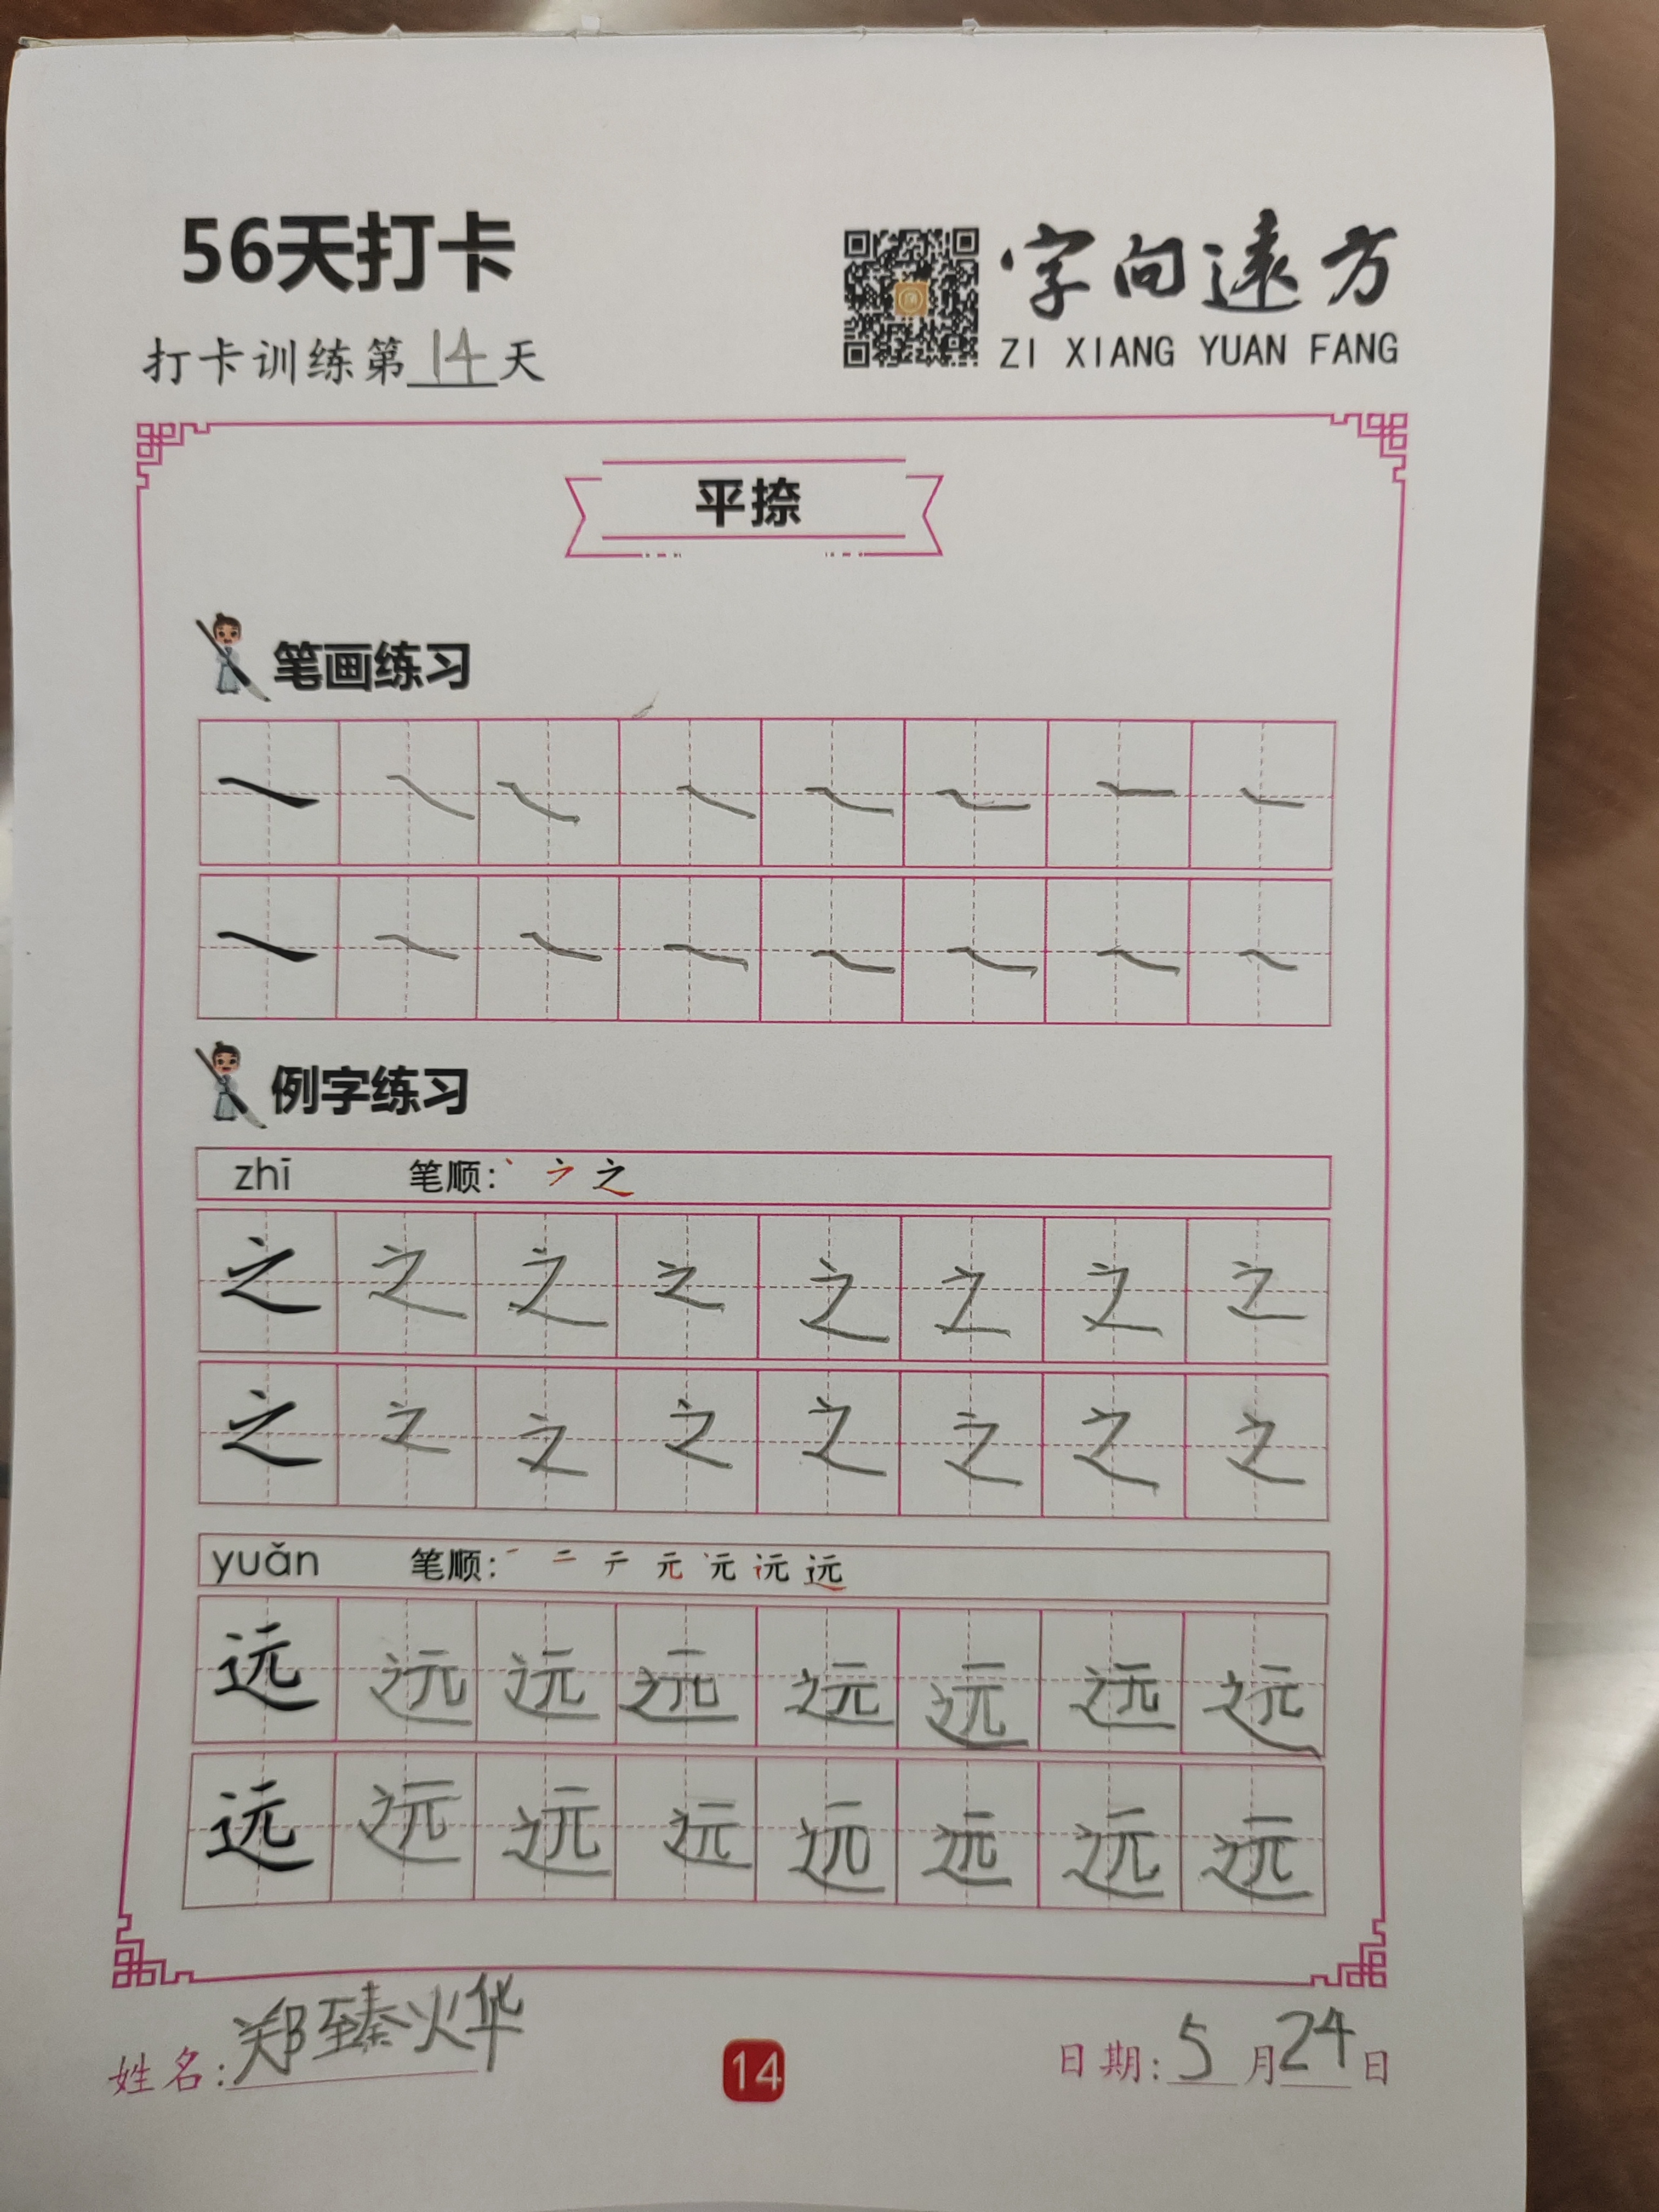 56天打卡
字向遠方
ZI XIANG YUAN FANG
打卡训练第14天
平捺
笔画练习
例字练习
zhī 笔顺: 丶 之
之 之 之 之 之 之 之 之
之 之 之 之 之 之 之 之
yuǎn 笔顺: 一 二 テ 元 远
远 远 远 远 远 远 远 远
远 远 远 远 远 远 远 远
姓名: 郑臻烨
14
日期: 5月24日